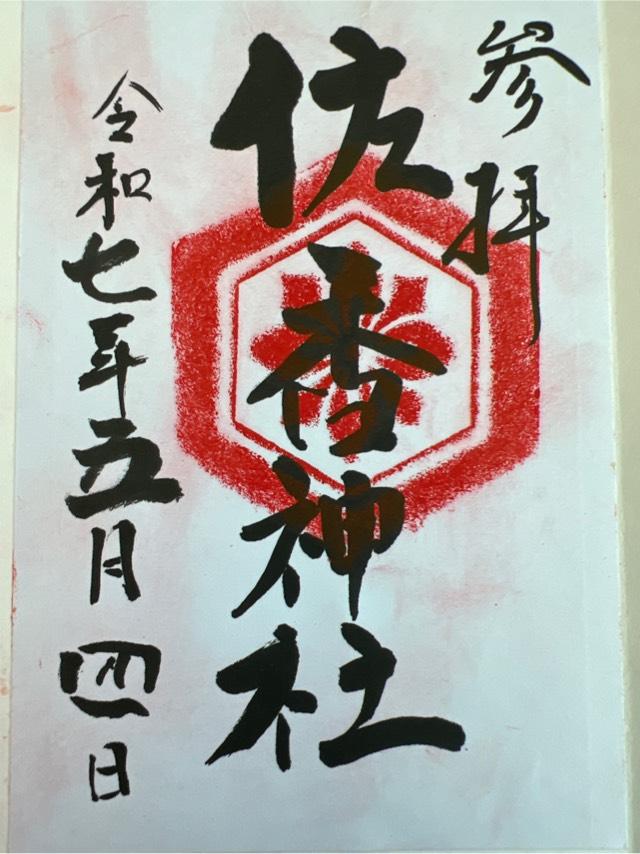 参拝
佐香神社
令和七年五月四日